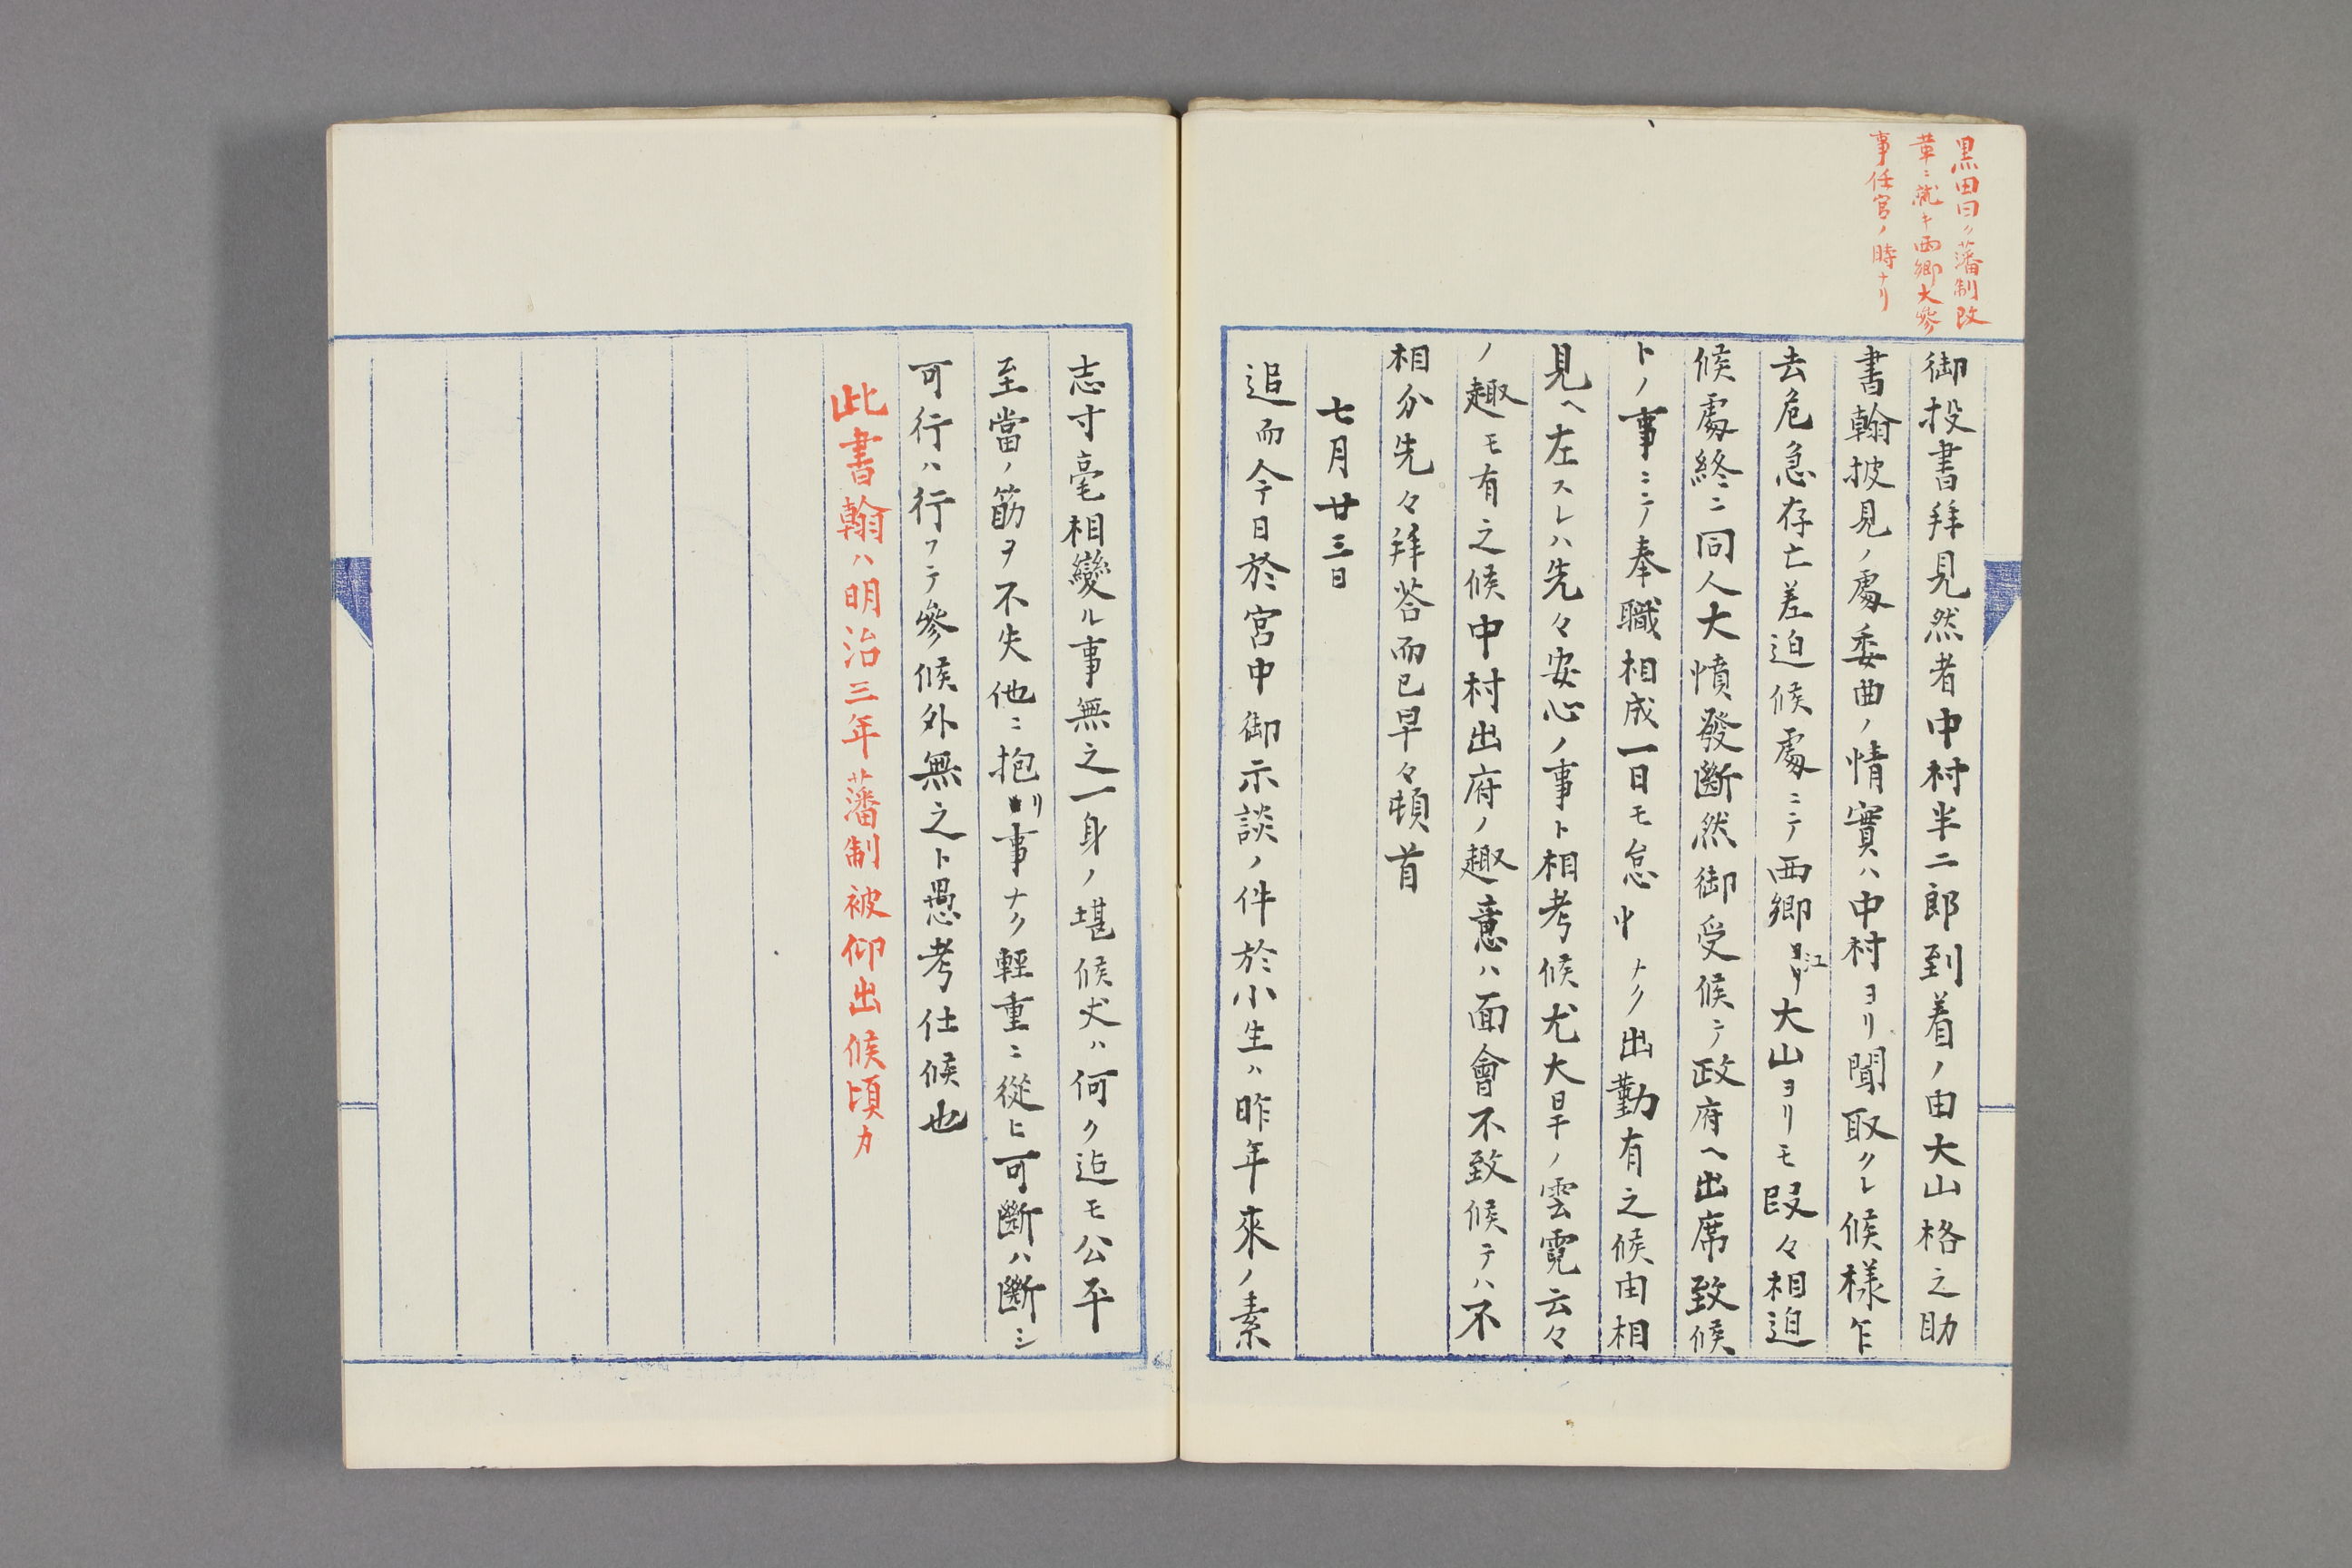 黒田曰ク藩制改
革ニ就キ西郷大參
事任官ノ時ナリ
御投書拜見然者中村半二郎到着ノ由大山格之助
書翰披見ノ處委曲ノ情實ハ中村ヨリ聞取クレ候様乍
去危急存亡差迫候處ニテ西郷江大山ヨリモ段々相迫
候處終ニ同人大憤發斷然御受候テ政府ヘ出席致候
トノ事ニテ奉職相成一日モ怠ナク出勤有之候由相
見ヘ左スレハ先々安心ノ事ト相考候尤大旱ノ雲霓云々
ノ趣モ有之候中村出府ノ趣意ハ面會不致候テハ不
相分先々拜答而已早々頓首
七月廿三日
追而今日於宮中御示談ノ件於小生ハ昨年來ノ素
志寸毫相變ル事無之一身ノ堪候丈ハ何ク迠モ公平
至當ノ筋ヲ不失他ニ抱リ事ナク輕重ニ從ヒ可斷ハ斷シ
可行ハ行フテ參候外無之ト愚考仕候也
此書翰ハ明治三年藩制被仰出候頃カ